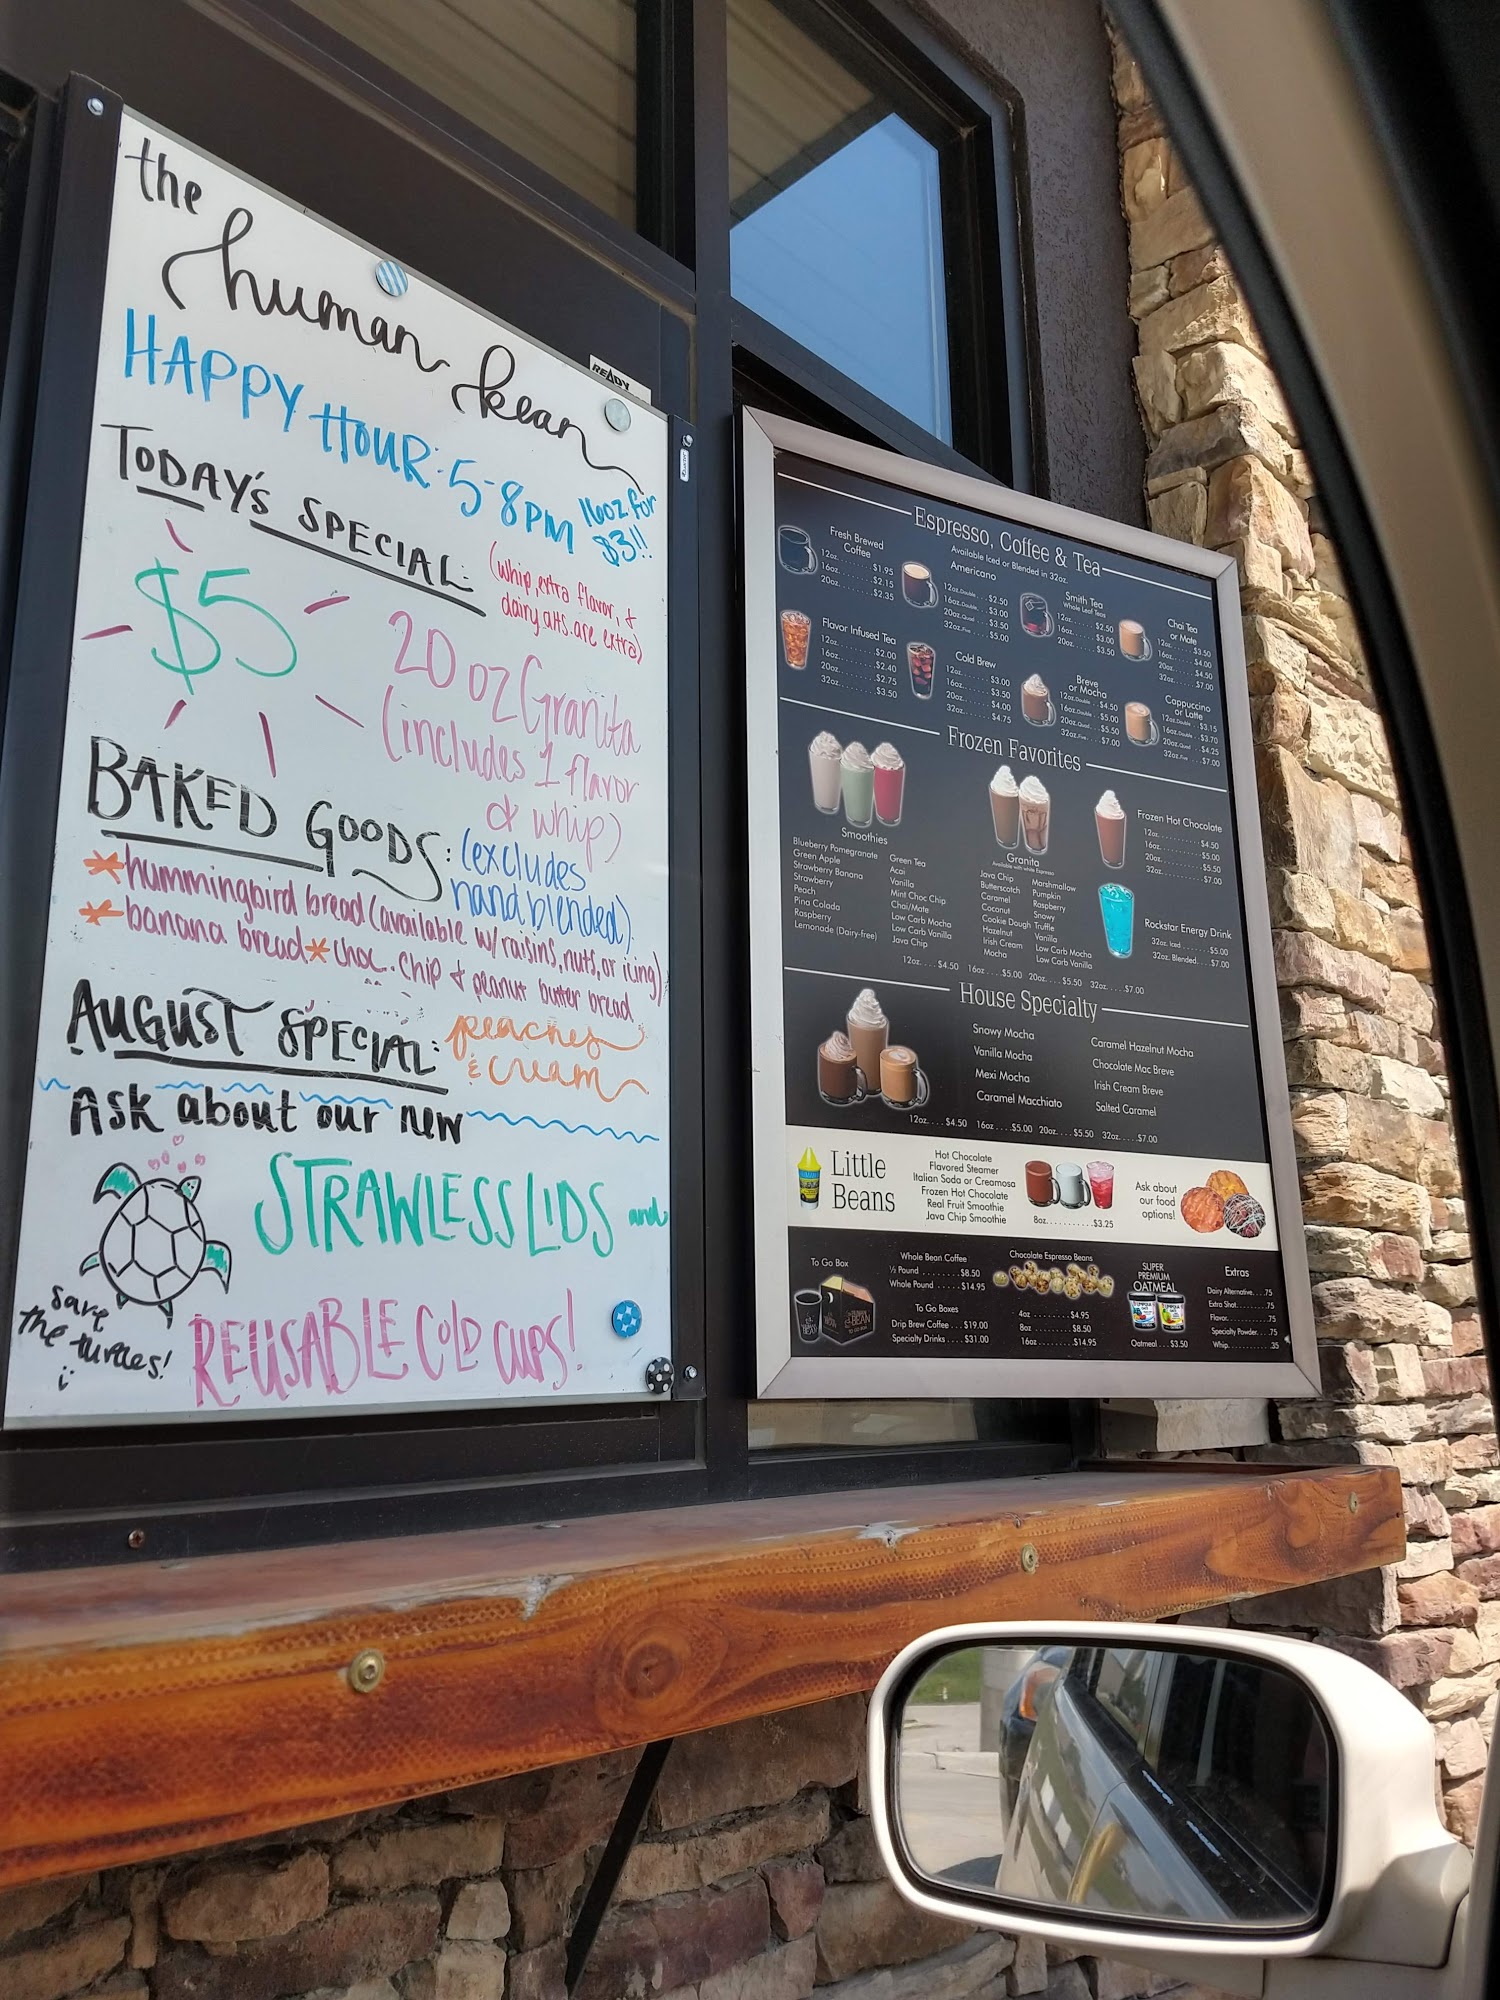 the
human bean
READY
HAPPY HOUR: 5-8PM
16oz for
$3!!
TODAY'S SPECIAL:
(whip, extra flavor, &
dairy alts. are extra)
$5
20 oz Granita
(includes 1 flavor
& whip)
BAKED GOODS:
(excludes
hand blended)
*hummingbird bread (available w/ raisins, nuts, or icing)
*banana bread *choc. chip & peanut butter bread
AUGUST SPECIAL:
peaches
& cream
Ask about our new
STRAWLESS LIDS and
save
the turtles!
REUSABLE COLD CUPS!
Espresso, Coffee & Tea
Available Iced or Blended in 32oz.
Fresh Brewed
Coffee
12oz. $1.95
16oz. $2.15
20oz. $2.35
Americano
12oz. Double $2.50
16oz. Double $3.00
20oz. Quad $3.50
32oz. Five $5.00
Smith Tea
Whole Leaf Teas
12oz. $2.50
16oz. $3.00
20oz. $3.50
Chai Tea
or Mate
12oz. $3.50
16oz. $4.00
20oz. $4.50
32oz. $7.00
Flavor Infused Tea
12oz. $2.00
16oz. $2.40
20oz. $2.75
32oz. $3.50
Cold Brew
12oz. $3.00
16oz. $3.50
20oz. $4.00
32oz. $4.75
Breve
or Mocha
12oz. Double $4.50
16oz. Double $5.00
20oz. Quad $5.50
32oz. Five $7.00
Cappuccino
or Latte
12oz. Double $3.15
16oz. Double $3.70
20oz. Quad $4.25
32oz. Five $7.00
Frozen Favorites
Smoothies
Blueberry Pomegranate
Green Apple
Strawberry Banana
Strawberry
Peach
Pina Colada
Raspberry
Lemonade (Dairy-free)
Green Tea
Acai
Vanilla
Mint Choc Chip
Chai/Mate
Low Carb Mocha
Low Carb Vanilla
Java Chip
Granita
Available with white Espresso
Java Chip
Butterscotch
Caramel
Coconut
Cookie Dough
Hazelnut
Irish Cream
Mocha
Marshmallow
Pumpkin
Raspberry
Snowy
Truffle
Vanilla
Low Carb Mocha
Low Carb Vanilla
12oz. $4.50 16oz. $5.00 20oz. $5.50 32oz. $7.00
Frozen Hot Chocolate
12oz. $4.50
16oz. $5.00
20oz. $5.50
32oz. $7.00
Rockstar Energy Drink
32oz. Iced $5.00
32oz. Blended $7.00
House Specialty
Snowy Mocha
Vanilla Mocha
Mexi Mocha
Caramel Macchiato
Caramel Hazelnut Mocha
Chocolate Mac Breve
Irish Cream Breve
Salted Caramel
12oz. $4.50 16oz. $5.00 20oz. $5.50 32oz. $7.00
Little
Beans
Hot Chocolate
Flavored Steamer
Italian Soda or Creamosa
Frozen Hot Chocolate
Real Fruit Smoothie
Java Chip Smoothie
8oz. $3.25
Ask about
our food
options!
To Go Box
Whole Bean Coffee
½ Pound $8.50
Whole Pound $14.95
To Go Boxes
Drip Brew Coffee $19.00
Specialty Drinks $31.00
Chocolate Espresso Beans
4oz $4.95
8oz $8.50
16oz $14.95
SUPER
PREMIUM
OATMEAL
Oatmeal $3.50
Extras
Dairy Alternative .75
Extra Shot .75
Flavor .75
Specialty Powder .75
Whip .35